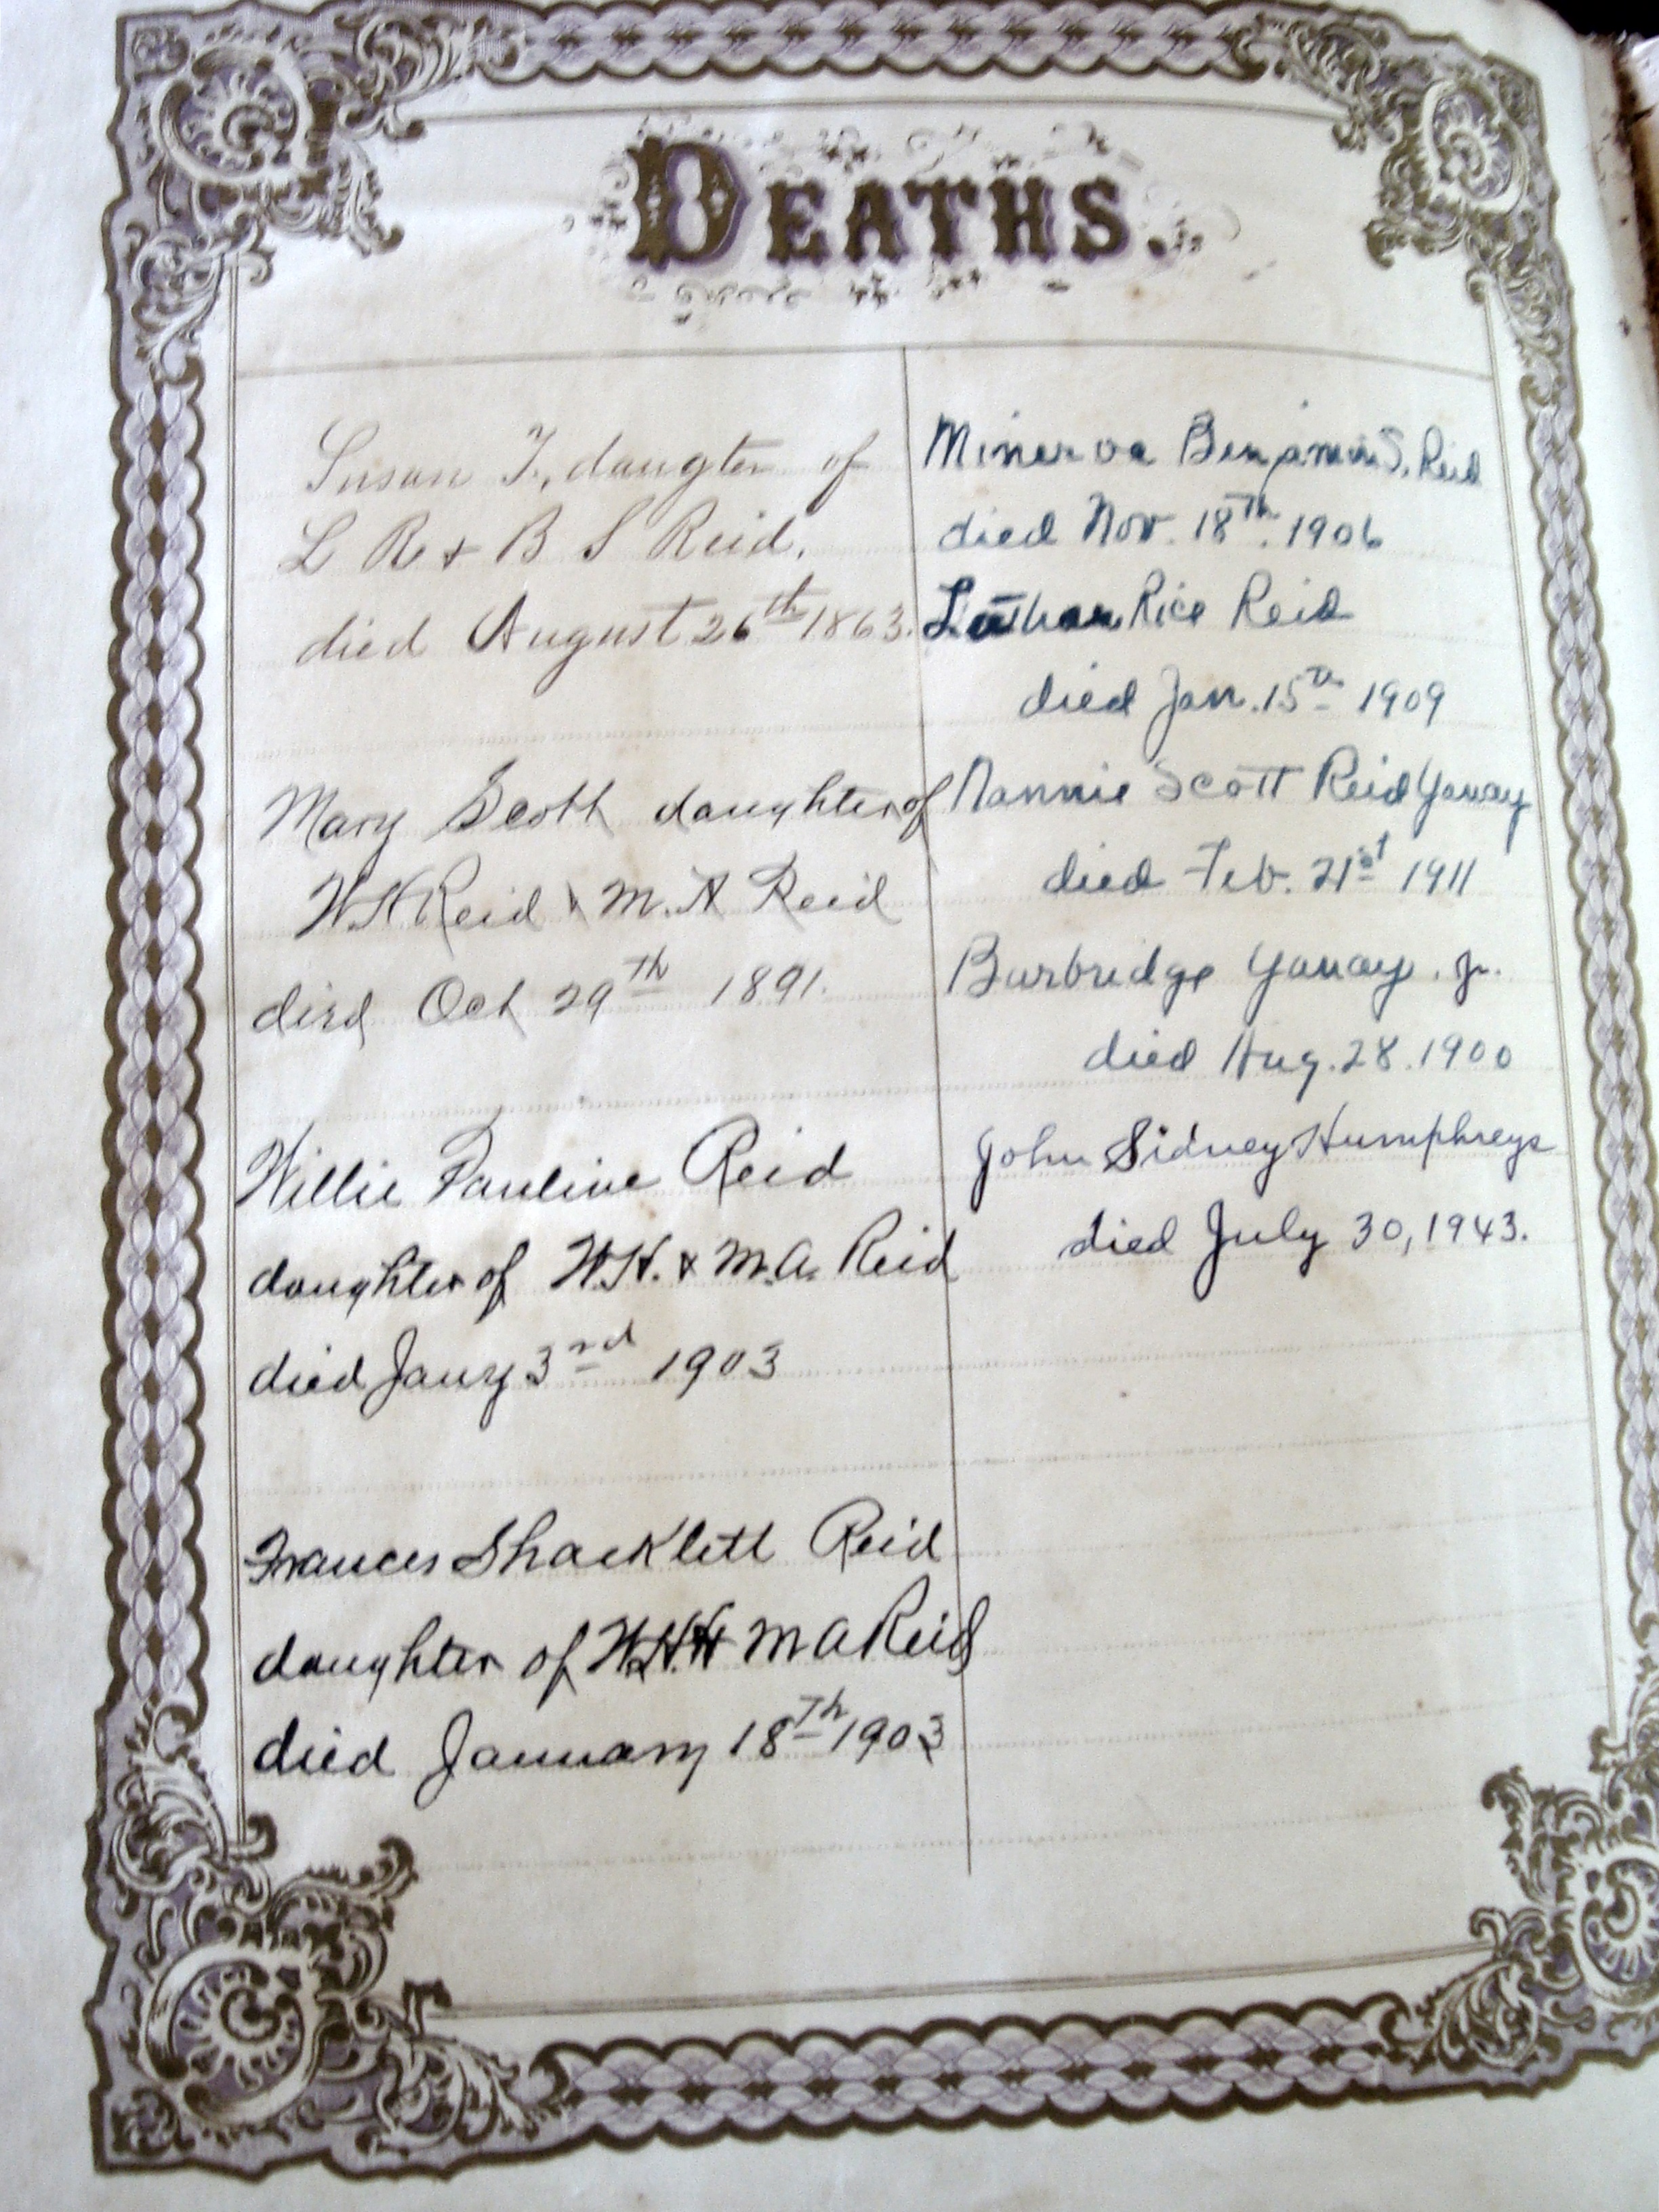 DEATHS.
Susan F, daugter of
L R & B S Reid.
died August 26th 1863.
Mary Scott daughter of
W H Reid & M. A Reid
died Oct 29th 1891.
Willie Pauline Reid
daughter of W.H. & M.A. Reid
died Jany 3rd 1903
Frances Shacklett Reid
daughter of W.H. M A Reid
died January 18th 1903
Minerva S. Reid
died Nov. 18th. 1906
Luther Rice Reid
died Jan. 15th 1909
Nannie Scott Reid Yancy
died Feb. 21st 1911
Burbridge Yancy. Jr.
died Aug. 28. 1900
John Sidney Humphreys
died July 30, 1943.